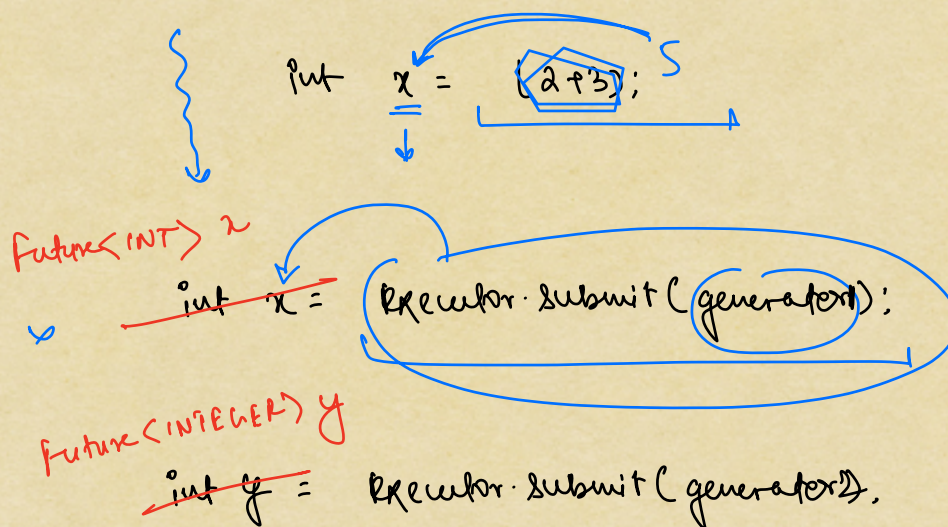 int x = (2+3); 5
Future<INT> x
int x = Executor.submit(generator1);
Future<INTEGER> y
int y = Executor.submit(generator2).